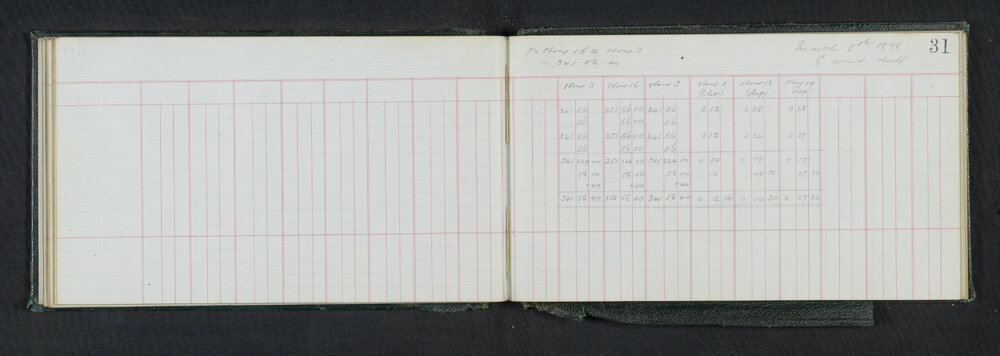 Stone 15 to Stone 3 March 8th 1898 31
341 . 56 . 40 6" dull
Stone 3 Stone 16 Stone 3 Stone 3 Stone 16 Stone 14
(Elev) (dep) (dep)
341 56 251 56 00 341 56 0 12 0 05 0 08
56 56 00 56
341 56 251 56 00 341 56 0 12 0 04 0 07
56 56 00 56
341 224 00 251 224 00 341 224 00 0 24 0 09 0 15
56 00 56 00 56 00 12 04 30 07 30
+40 +40 +40
341 56 40 251 56 40 341 56 40 0 12 00 0 04 30 0 07 30